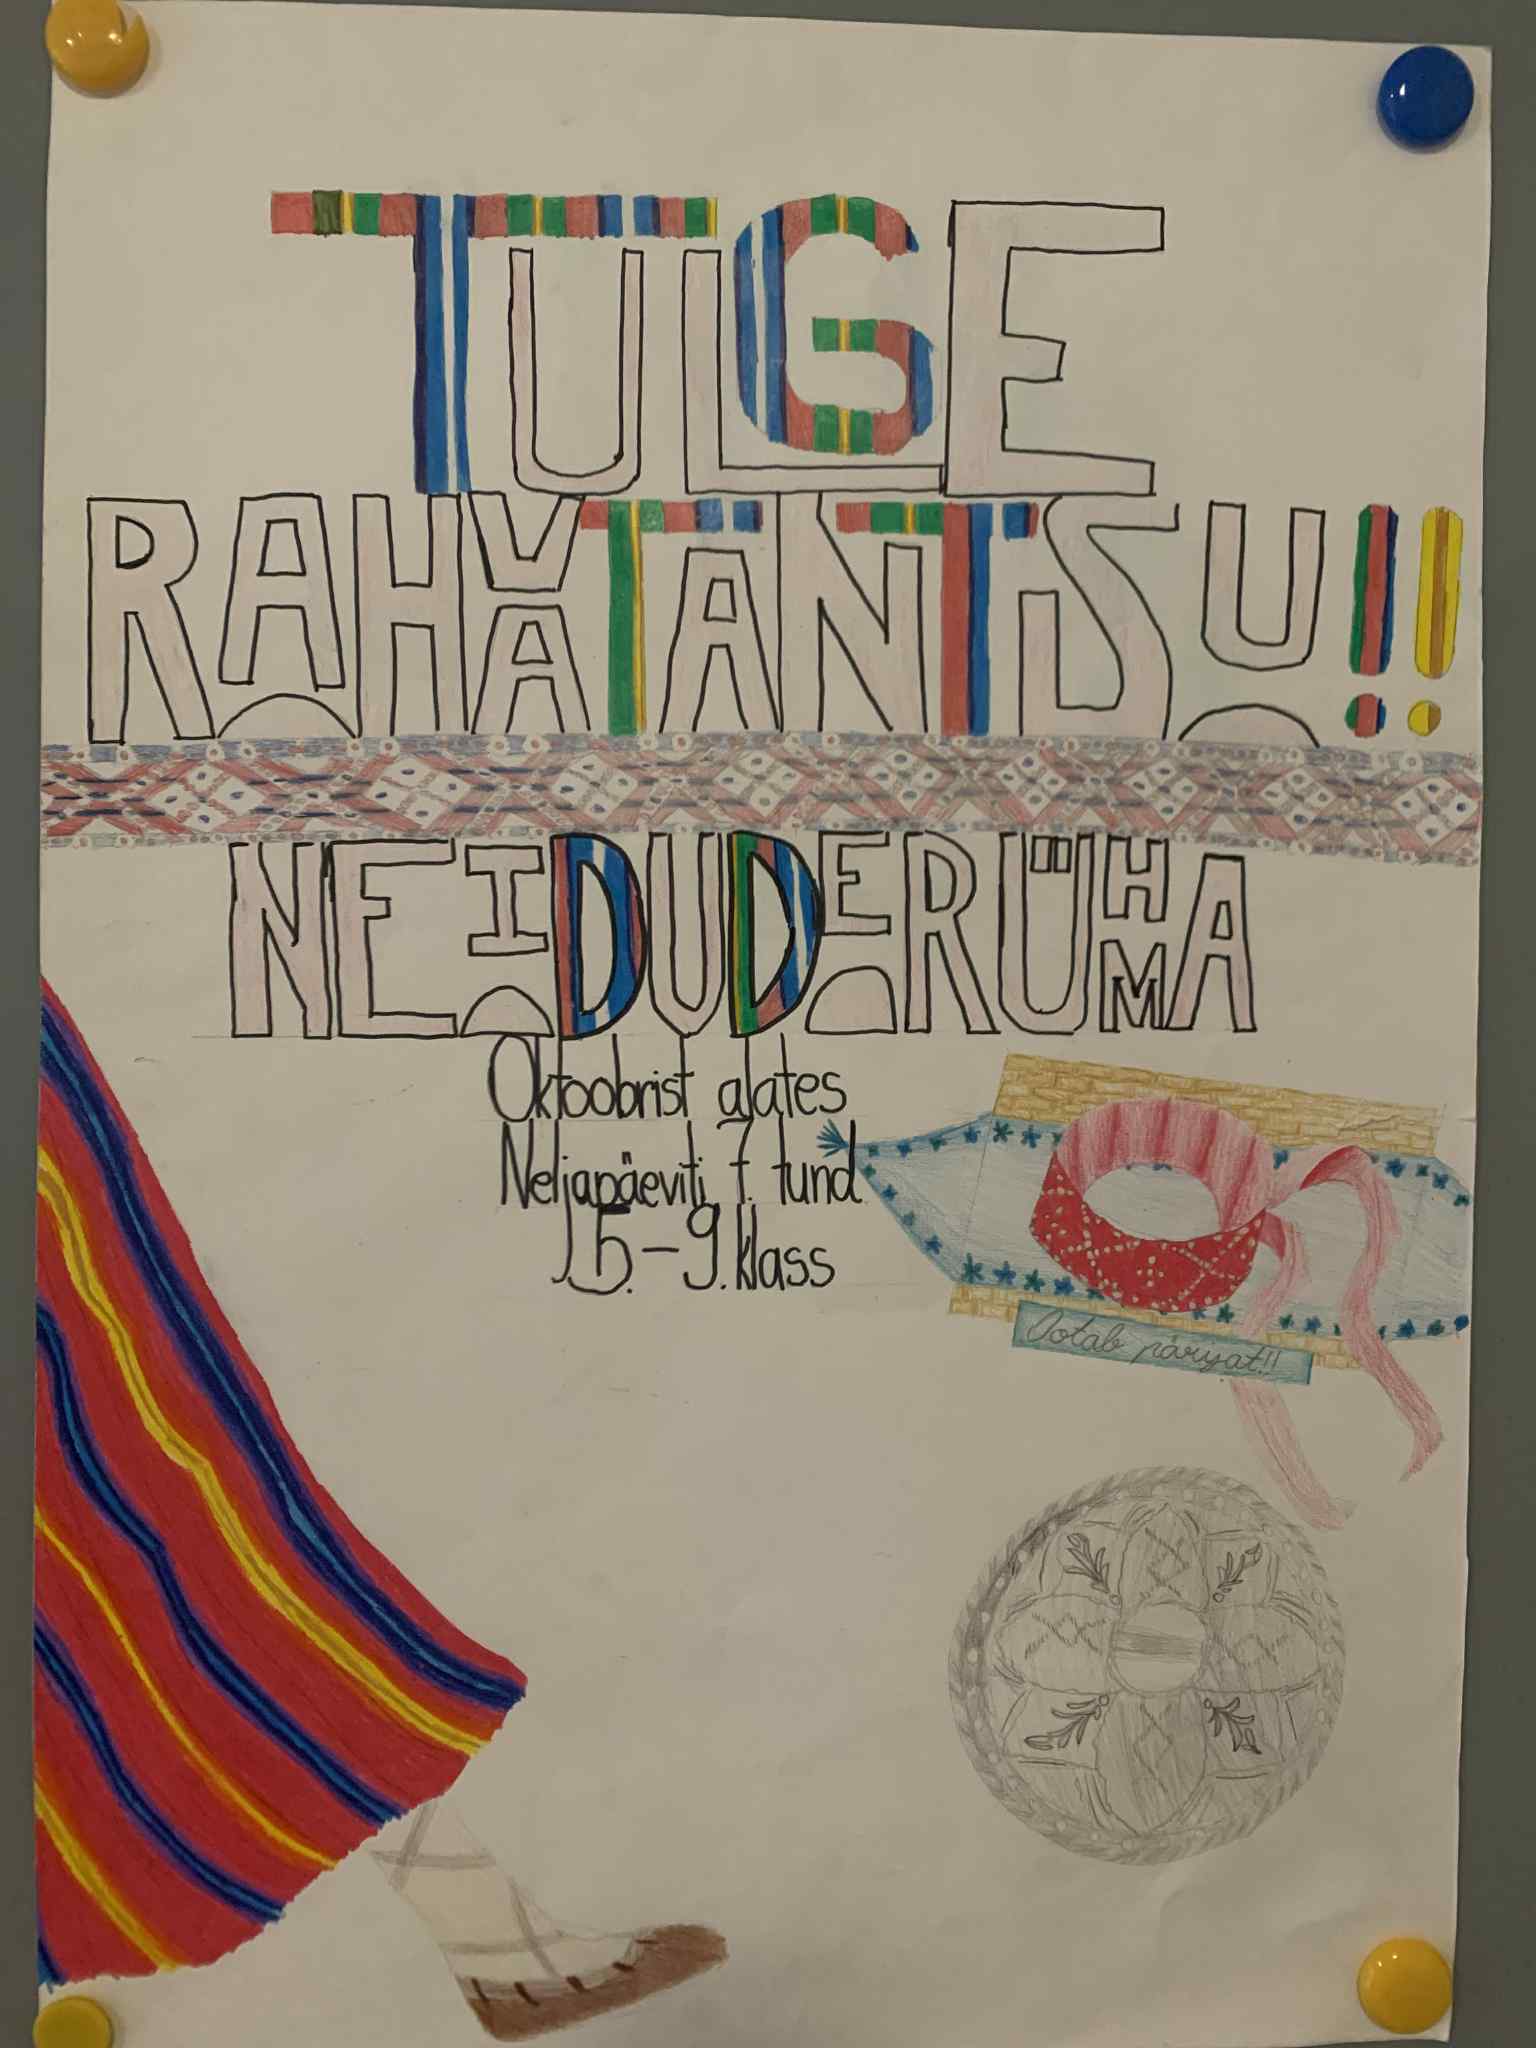 TULGE
RAHVATANTSU!!
NEIDUDERÜHMA
Oktoobrist alates
Neljapäeviti 7. tund
5.-9. klass
Ootab pärijat!!